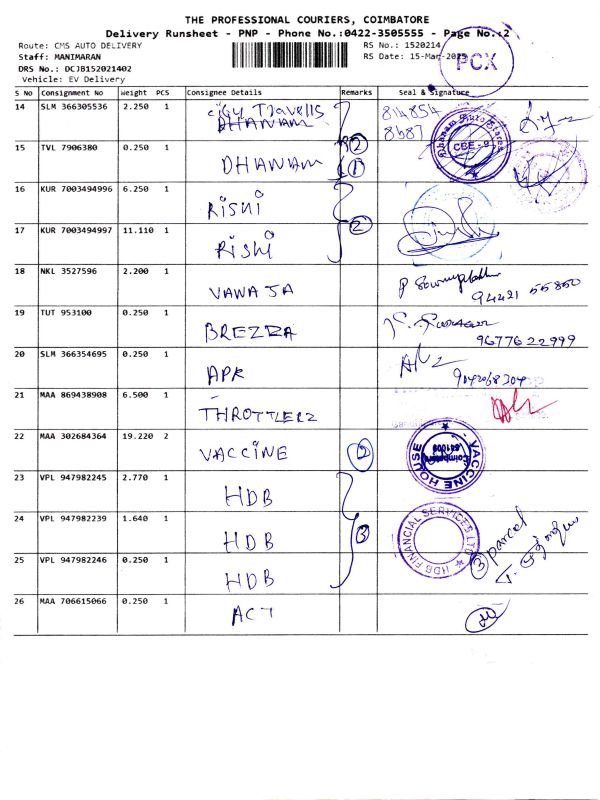 THE PROFESSIONAL COURIERS, COIMBATORE
Delivery Runsheet - PNP - Phone No.:0422-3505555 - Page No.:2
Route: CMS AUTO DELIVERY
RS No.: 1520214
Staff: MANIMARAN
RS Date: 15-Mar-2025
PCX
DRS No.: DCJB152021402
Vehicle: EV Delivery
S No Consignment No Weight PCS Consignee Details Remarks Seal & Signature
14 SLM 366305536 2.250 1 City Travells
DHANAM
814854
8687
15 TVL 7906380 0.250 1 DHANAM
2
1
Dhanam Auto Stores
CBE - 9
16 KUR 7003494996 6.250 1 RISHI
17 KUR 7003494997 11.110 1 RISHI 2
18 NKL 3527596 2.200 1 VAWA JA 94421 55850
19 TUT 953100 0.250 1 BREZZA 96776 22999
20 SLM 366354695 0.250 1 APR 9042068304
21 MAA 869438908 6.500 1 THROTTLERZ
22 MAA 302684364 19.220 2 VACCINE 2
VACCINE HOUSE
Coimbatore
641009
23 VPL 947982245 2.770 1 HDB
24 VPL 947982239 1.640 1 HDB 3
HDB FINANCIAL SERVICES LTD
3 parcel
25 VPL 947982246 0.250 1 HDB
26 MAA 706615066 0.250 1 ACT